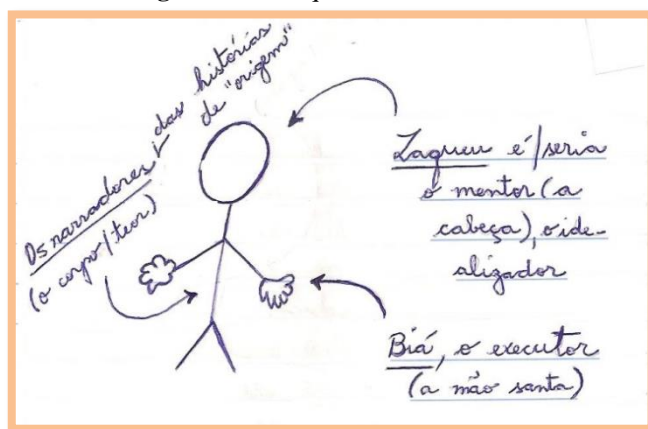 Os narradores das histórias
de "origem"
(o corpo/teor)
Zaqueu é/seria
o mentor (a
cabeça), o ide-
alizador
Biá, o executor
(a mão santa)